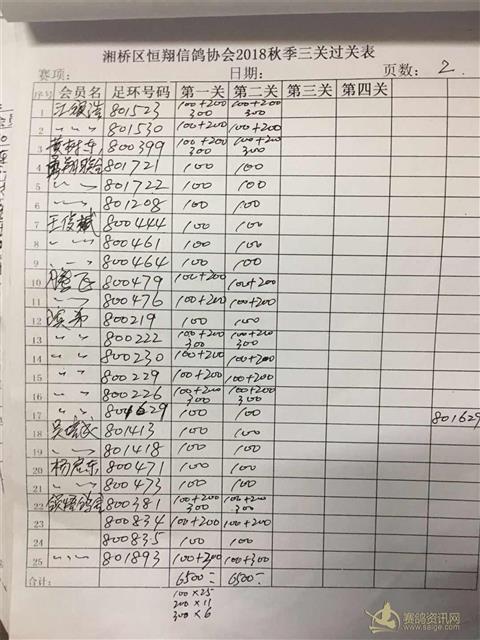 湘桥区恒翔信鸽协会2018秋季三关过关表
赛项: 日期: 页数: 2.
序号 会员名 足环号码 第一关 第二关 第三关 第四关
1 江银浩 801523 100+200 300 100+200 300
2 〃 〃 801530 100+200 100+200
3 黄树东 800399 100+200 300 100+200 300
4 801721 100 100
5 〃 〃 801722 100 100
6 〃 〃 801208 100 100
7 王俊斌 800444 100 100
8 〃 〃 〃 800461 100 100
9 〃 〃 〃 800464 100 100
10 腾飞 800479 100+200 100+200
11 〃 〃 800476 100+200 100+200
12 800219 100 100
13 〃 〃 800222 100+200 300 100+200 300
14 〃 〃 800230 100+200 100+200
15 〃 〃 800229 100+200 100+200
16 〃 〃 800226 100+200 300 100+200 300
17 〃 〃 100 100 801629
18 801413 100 100
19 〃 〃 801418 100 100
20 杨启东 800471 100 100
21 〃 〃 800473 100 100
22 800381 100+200 300 100+200 300
23 800834 100+200 100+200
24 800835 100 100
25 〃 〃 〃 801893 100+300 100+300
合计: 6500- 6500-
100×25
200×11
300×6
赛鸽资讯网
www.saige.com